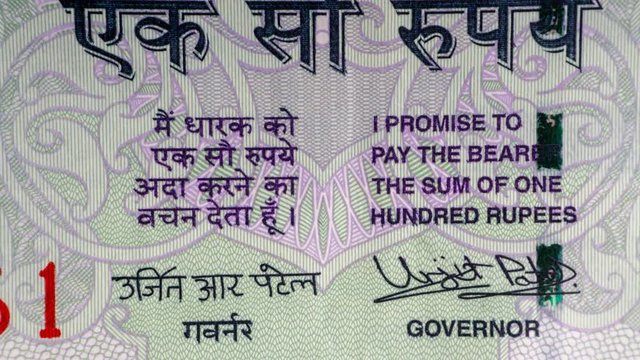 एक सौ रुपये
मैं धारक को
एक सौ रुपये
अदा करने का
वचन देता हूँ ।
I PROMISE TO
PAY THE
THE SUM OF ONE
HUNDRED RUPEES
उर्जित आर पटेल
गवर्नर
Urjit Patel
GOVERNOR
1